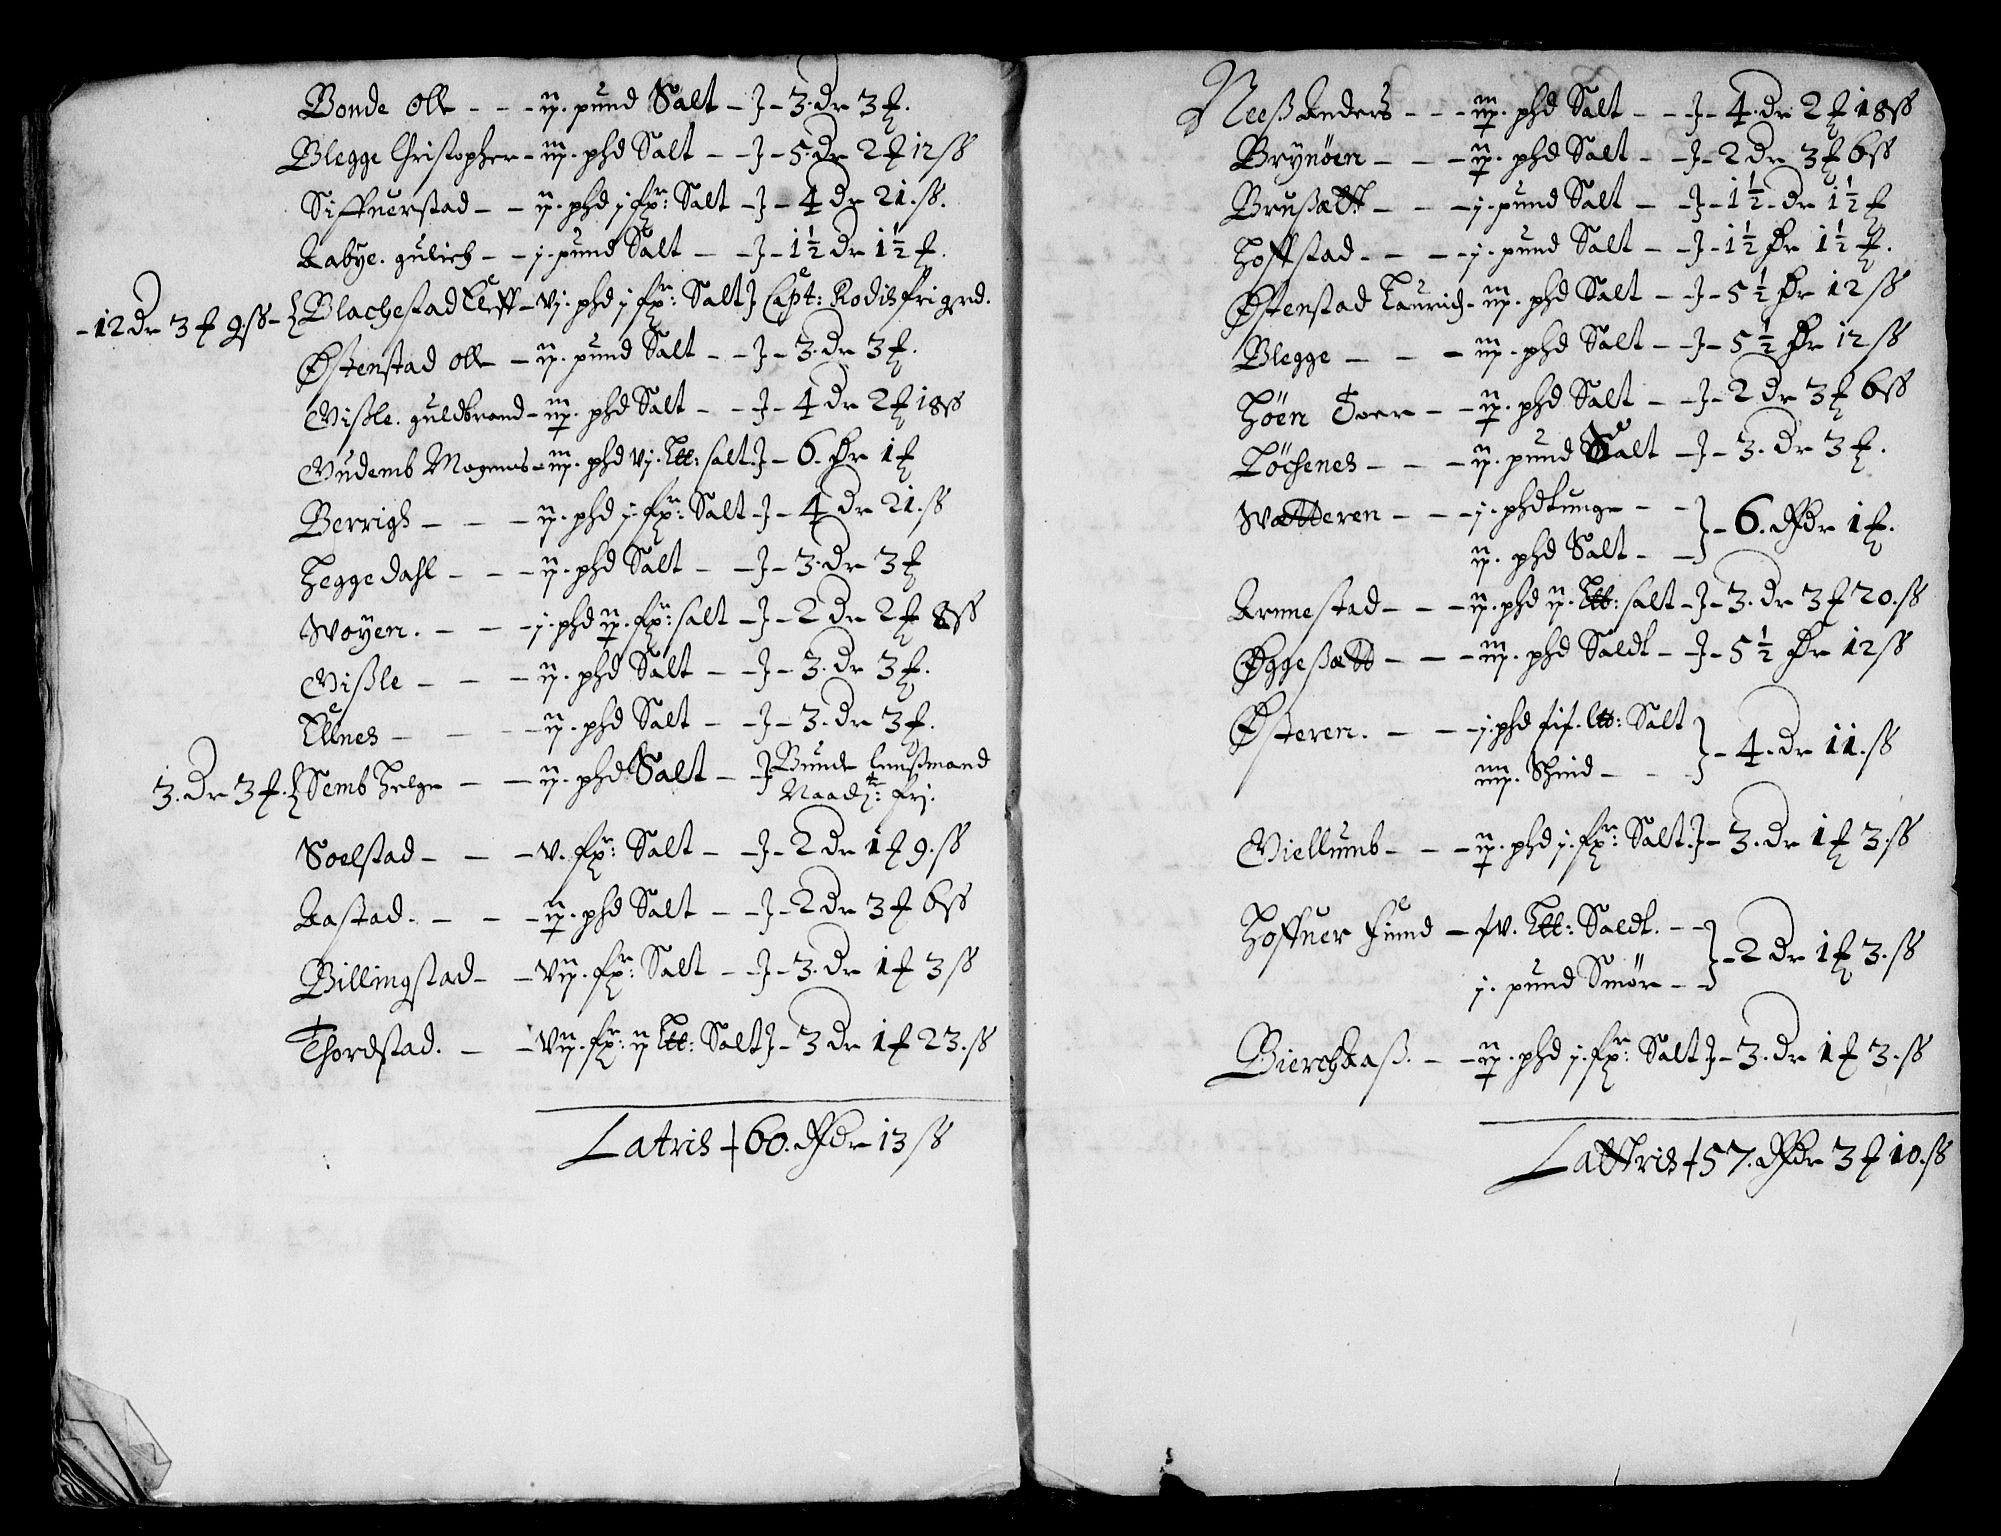 Bonde Olle - - - ij. pund Salt - } - 3. dr 3 ƒ.
Blegge Christopher - iij. phd Salt - - } - 5. dr 2 ƒ 12 ß
Siffuerstad - - ij. phd j fχr: Salt - } - 4 dr 21. ß.
Aabye. gulich - - j. pund Salt - - } - 1½ dr 1½ ƒ.
- 12 dr 3 ƒ 9. ß - { Blachestad Leff - vj. phd j fχr: Salt } Capt: Kodis fri grd.
Østenstad Olle - ij. pund Salt - - } - 3. dr 3 ƒ.
Vißle. guldbrand - iij. phd Salt - - } - 4 dr 2 ƒ 18 ß
Gudemb Mogens - iij. phd vj. Ltt: salt. } - 6. dr 1 ƒ
Berrigh - - - ij. phd j. fχr: Salt - } - 4 dr 21. ß
Heggedahl - - - ij. phd Salt - - } - 3. dr 3 ƒ
Woyen. - - - j. phd ij. fχr: salt - } - 2 dr 2 ƒ 8 ß
Vißle - - - ij. phd Salt - - } - 3. dr 3 ƒ.
Ellnes - - - ij. phd Salt - - } - 3. dr 3 ƒ.
3. dr 3 ƒ. { Semb Helge - - ij. phd Salt - } Bunde lenßmand
Naadχt: fri.
Soelstad - - - v. fχr: Salt - - } - 2 dr 1 ƒ 9. ß
Aastad. - - - ij. phd Salt - - } - 2 dr 3 ƒ 6 ß
Billingstad - - vij. fχr: Salt - } - 3. dr 1 ƒ 3 ß
Thordstad. - - vij. fχr: ij Ltt: Salt } - 3 dr 1 ƒ 23. ß
Latris 60. Rdr 13 ß
Neeß Anders - - - iij. phd Salt - - } - 4. dr 2 ƒ 18 ß
Brynøen - - - ij. phd Salt - - } - 2 dr 3 ƒ 6 ß
Brußætt - - - j. pund Salt - - } - 1½. dr 1½ ƒ
Hoffstad - - - j. pund Salt - - } - 1½ dr 1½ ƒ.
Østenstad Laurich - iij. phd Salt - - } - 5½ dr 12 ß
Blegge - - - iij. phd Salt - - } - 5½ dr 12 ß
Høen Toer - - ij. phd Salt - - } - 2 dr 3 ƒ 6 ß
Løchenes - - - ij. pund Salt - } - 3. dr 3 ƒ.
Wætteren - - - j. phd tunge - - } - 6. Rdr 1 ƒ.
ij. phd Salt - -
Arnnestad - - - ij. phd ij. Ltt: salt - } - 3. dr 3 ƒ 20. ß
Øggeßætt - - - iij. phd Saldt - } - 5½ dr 12 ß
Østeren. - - - j. phd fif. ltt: Salt } - 4. dr 11. ß
iiij. Skind - -
Viellumb - - - ij. phd j. fχr: Salt. } - 3. dr 1 ƒ 3. ß
Hoffner Fiund - fv. Ltt: Saldt. - - } - 2 dr 1 ƒ 3. ß
j. pund Smør - -
Bierchaaß. - - ij. phd j. fχr: Salt } - 3. dr 1 ƒ 3. ß
Lattris 57. Rdr 3 ƒ 10. ß